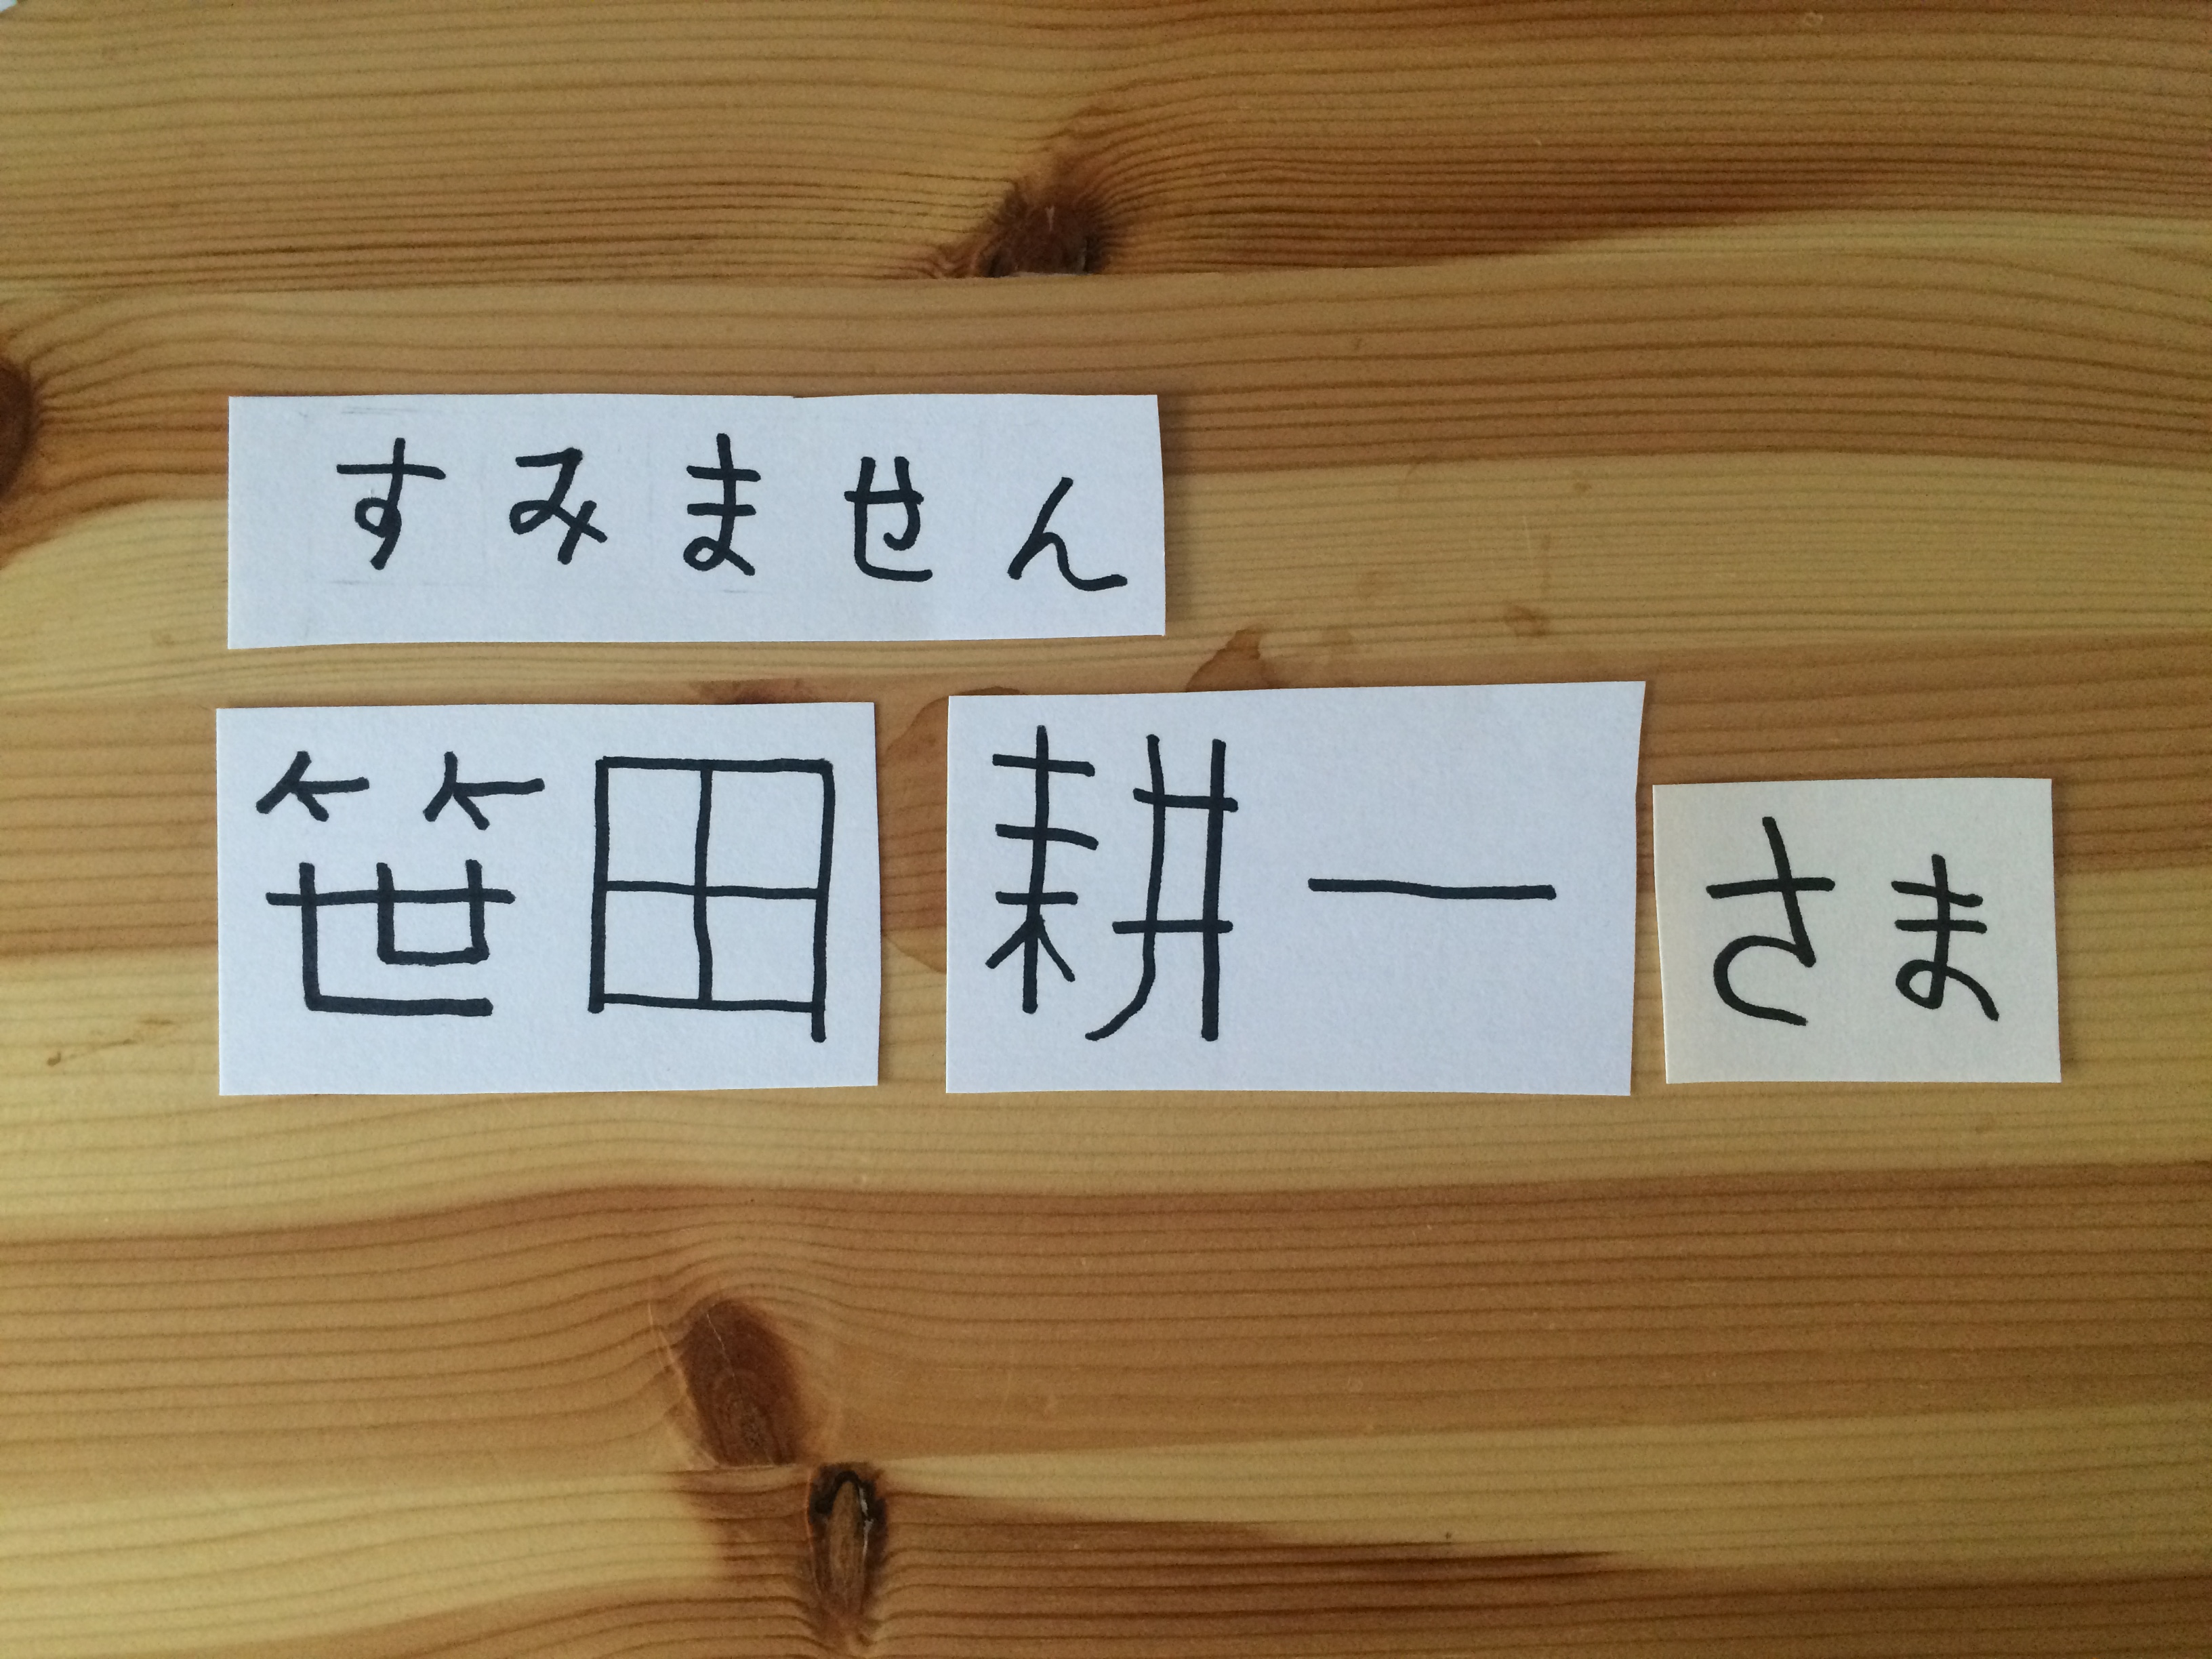 すみません
笹田 耕一 さま